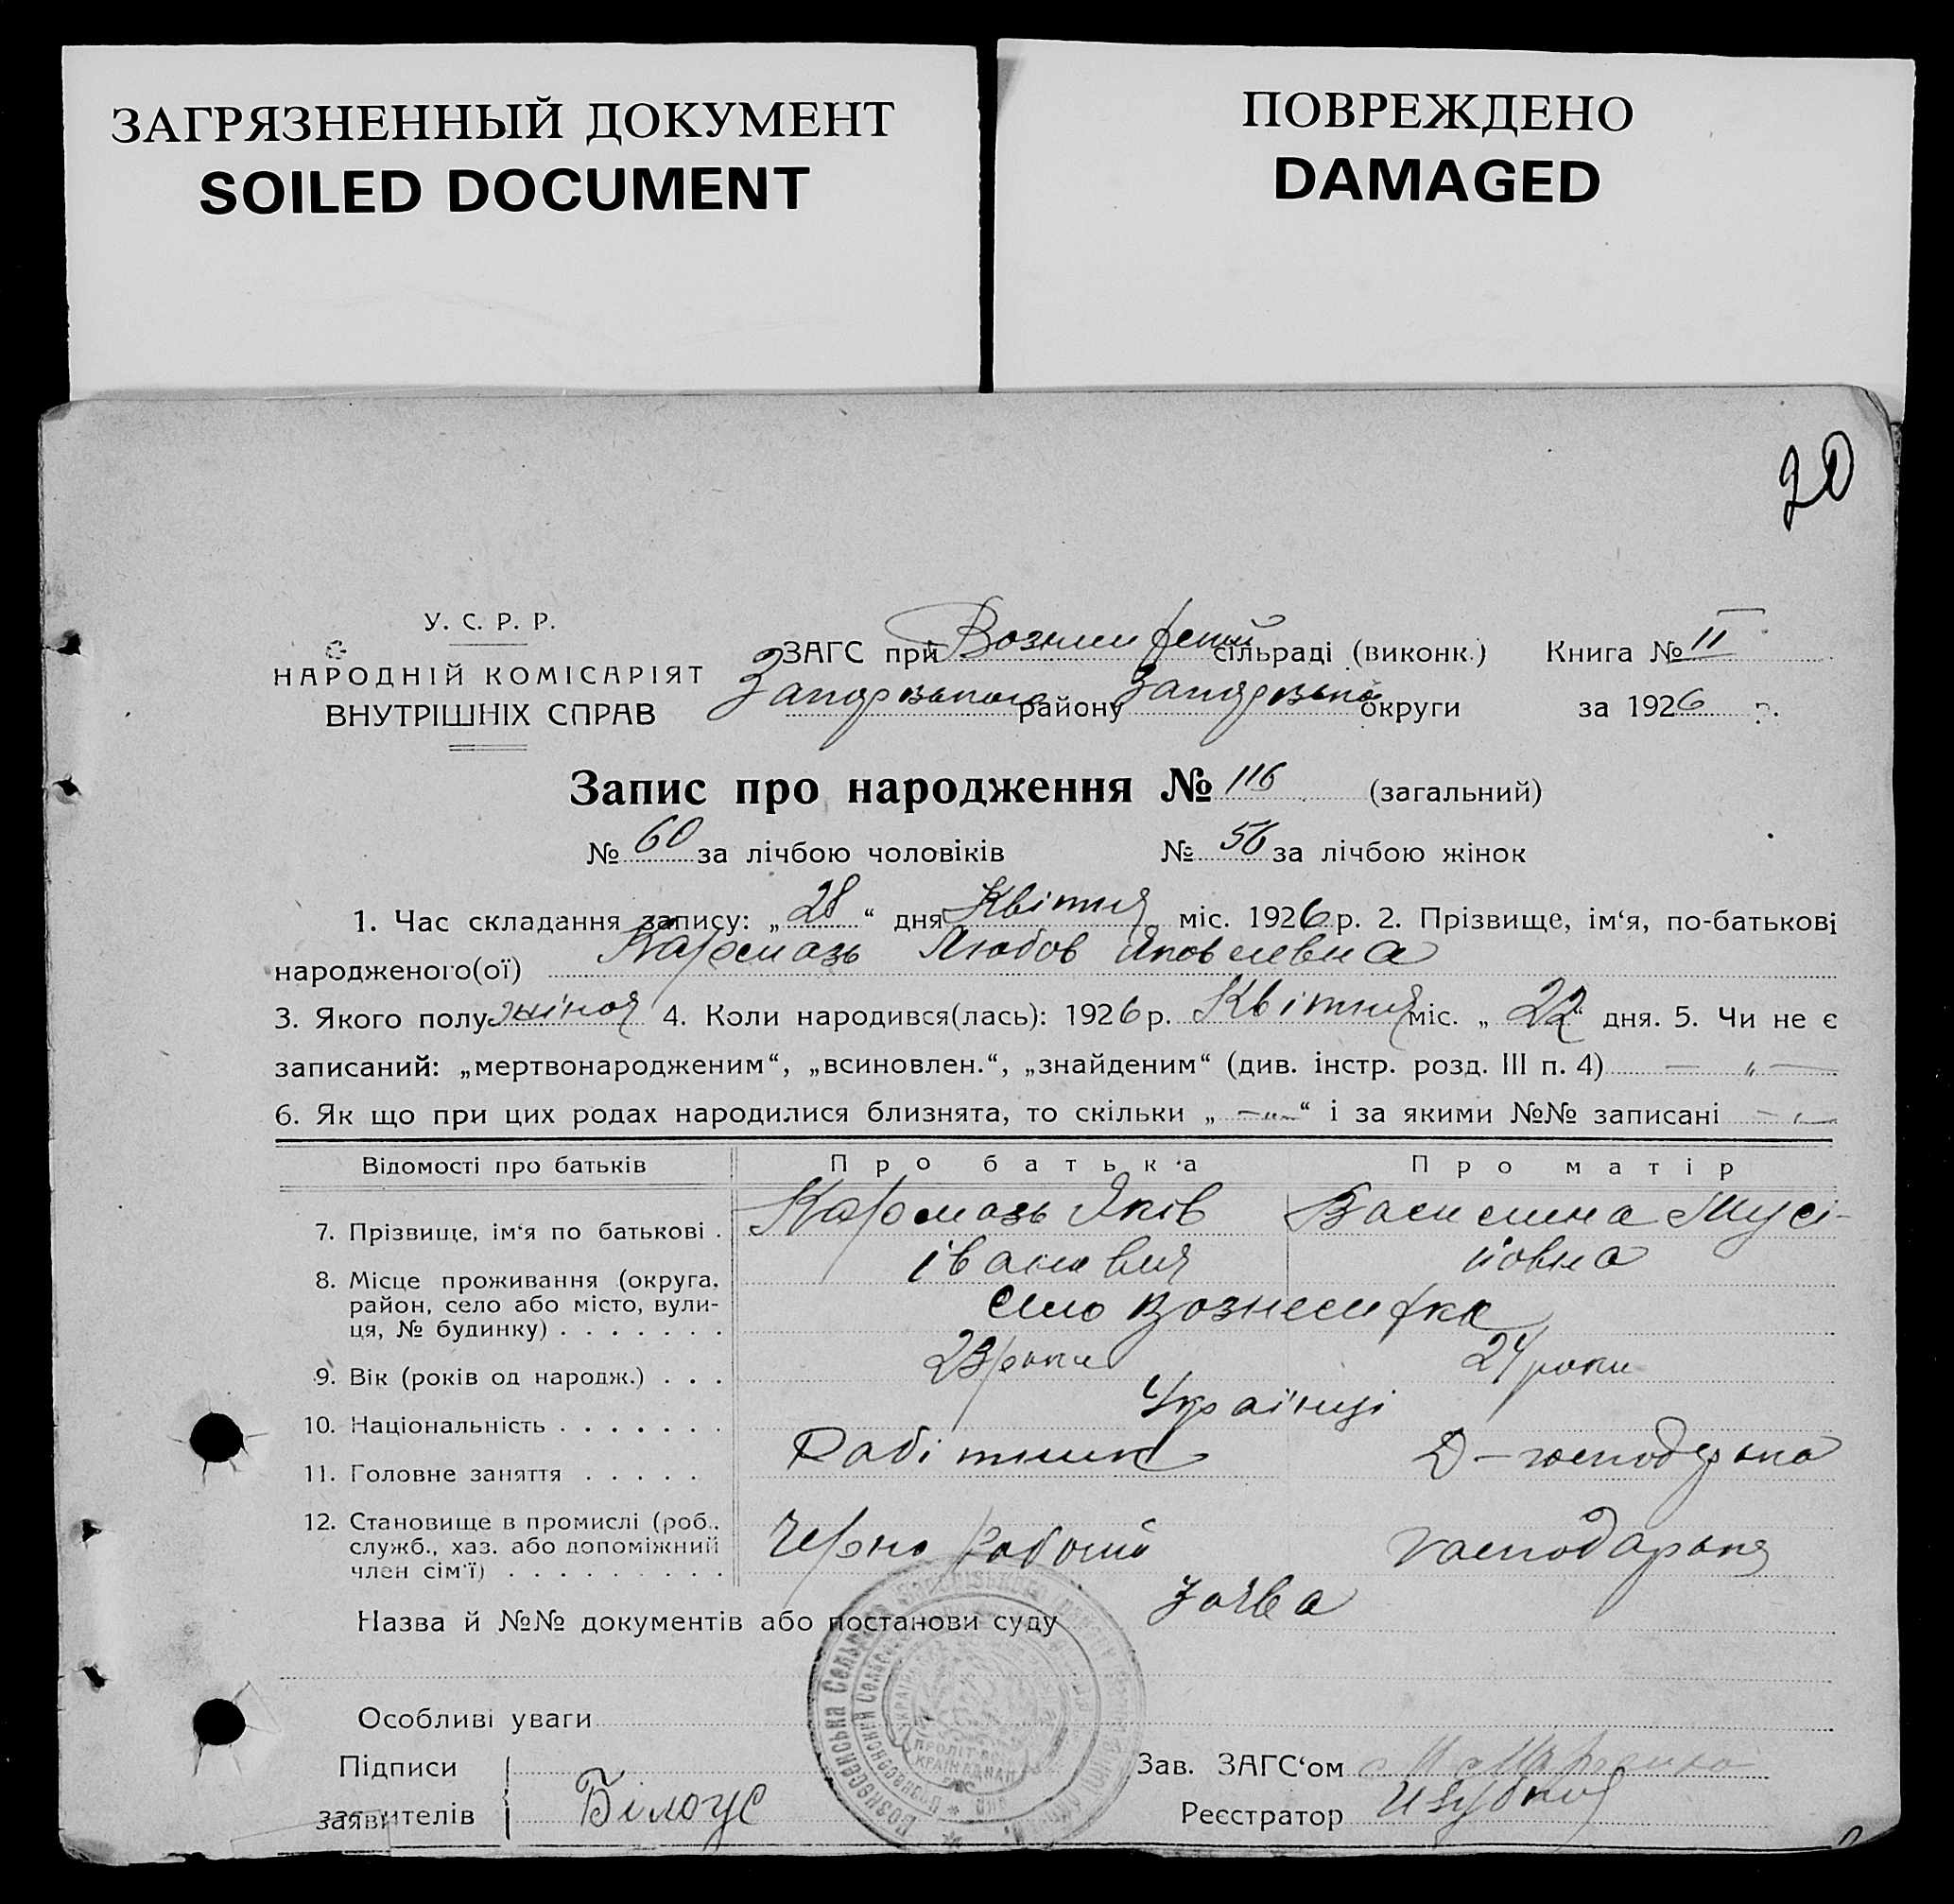 ЗАГРЯЗНЕННЫЙ ДОКУМЕНТ
SOILED DOCUMENT
ПОВРЕЖДЕНО
DAMAGED
20
У. С. Р. Р.
НАРОДНІЙ КОМІСАРІЯТ
ВНУТРІШНІХ СПРАВ
ЗАГС при сільраді (виконк.) Книга № II
району округи за 1926 р.
Запис про народження № 116 (загальний)
№ 60 за лічбою чоловіків № 56 за лічбою жінок
1. Час складання запису: „28“ дня Квітня міс. 1926 р. 2. Прізвище, ім‘я, по-батькові
народженого(ої) Кармазь Любов Яковлевна
3. Якого полу жіноч 4. Коли народився(лась): 1926 р. Квітня міс. „22“ дня. 5. Чи не є
записаний: „мертвонародженим“, „всиновлен.“, „знайденим“ (див. інстр. розд. III п. 4) — „ —
6. Як що при цих родах народилися близнята, то скільки „ –„– “ і за якими №№ записані – „ –
Відомості про батьків Про батька Про матір
7. Прізвище, ім‘я по батькові . Кармазь Яків Василина Мусі-
іванович йовна
8. Місце проживання (округа, район, село або місто, вули-
ця, № будинку) . . . . . . . село Вознесенка
9. Вік (років од народж.) . . . 23 роки 24 роки
10. Національність . . . . . . . Українці
11. Головне заняття . . . . . Робітник Д–господарка
12. Становище в промислі (роб., служб., хаз. або допоміжний
член сім‘ї) . . . . . . . . . Чернорабочий господарка
Назва й №№ документів або постанови суду заява
Особливі уваги
Підписи
заявителів Білоус
Зав. ЗАГС‘ом
Реєстратор